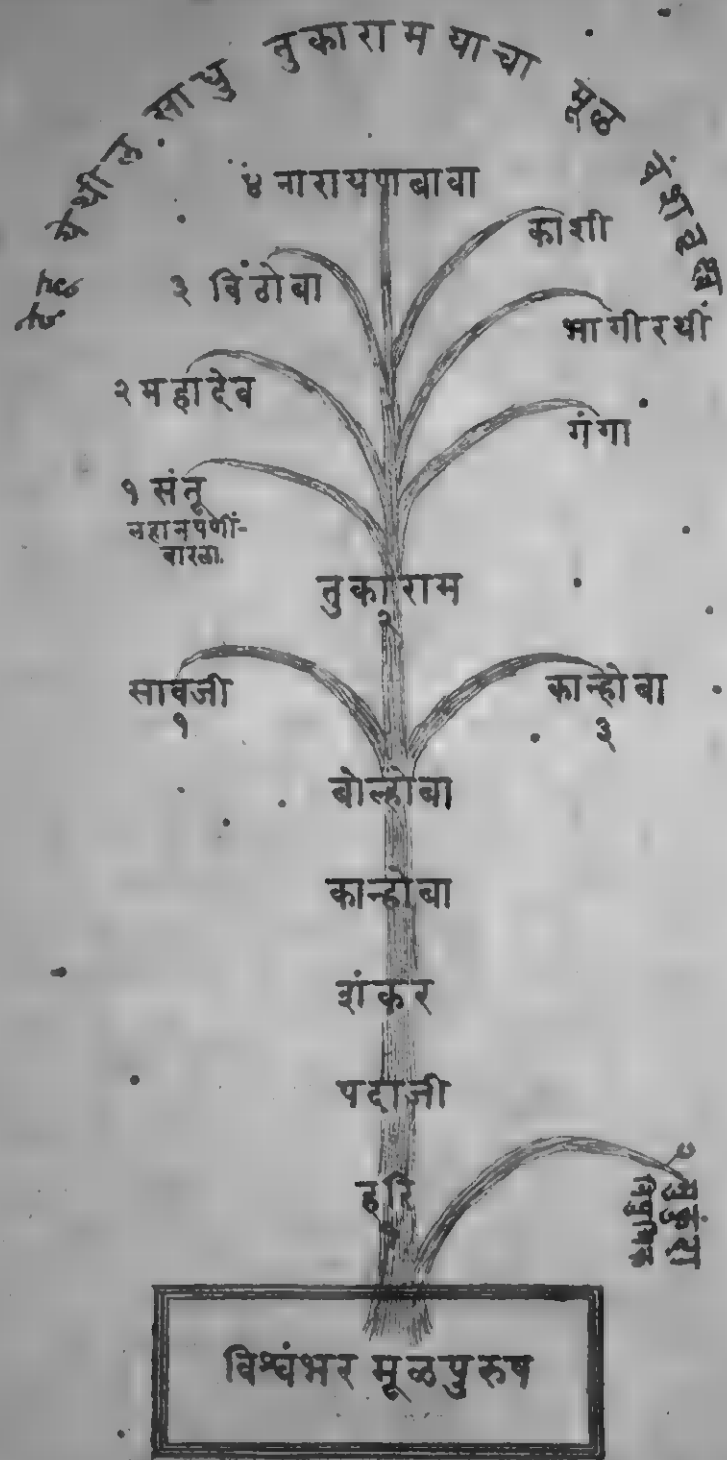 देहू येथील साधु तुकाराम याचा मूळ वंशवृक्ष
४ नारायणबावा
काशी
३ विठोबा
भागीरथी
२ महादेव
गंगा
१ संतू
लहानपणीं-
वारला.
तुकाराम
२
सावजी
१
कान्होबा
३
बोल्होबा
कान्होबा
शंकर
पदाजी
हरि
१
२ मुकुंदा
निपुत्रिक
विश्वंभर मूळपुरुष